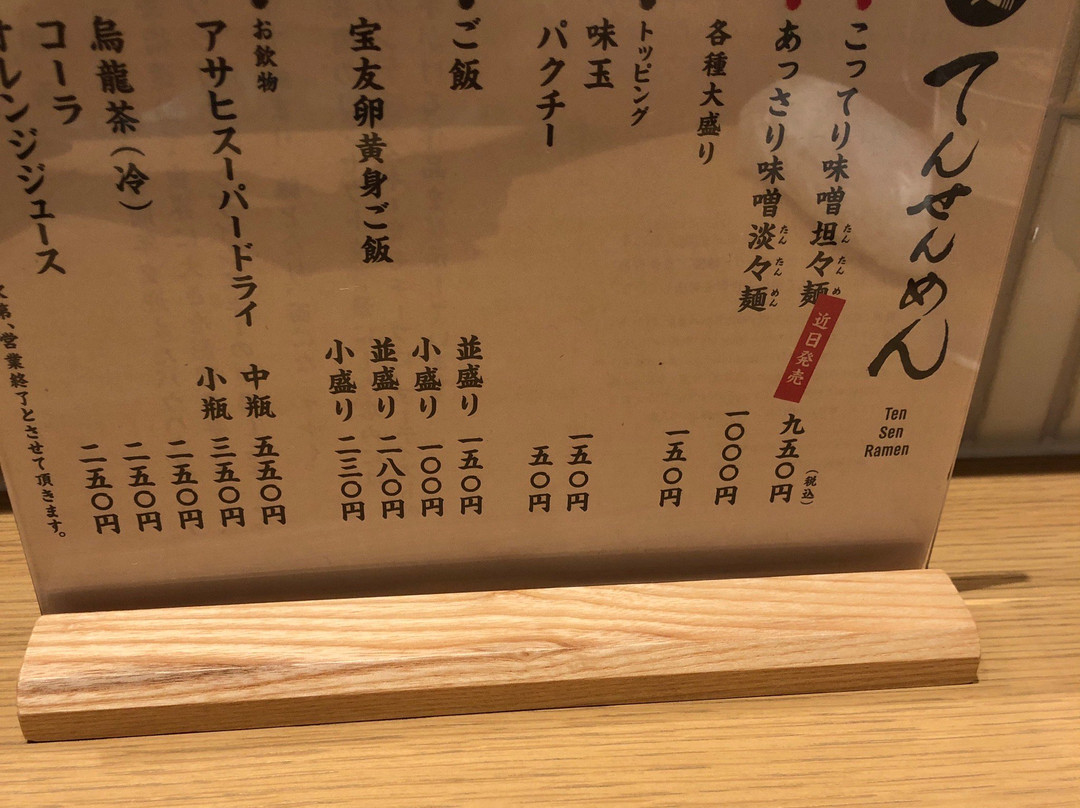 てんせんめん
Ten
Sen
Ramen
こってり味噌坦々麺 近日発売 九五〇円(税込)
たんたんめ
あっさり味噌淡々麺 一〇〇〇円
たんたんめん
各種大盛り 一五〇円
トッピング
味玉 一五〇円
パクチー 五〇円
ご飯 並盛り 一五〇円
小盛り 一〇〇円
宝友卵黄身ご飯 並盛り 二八〇円
小盛り 二三〇円
お飲物
アサヒスーパードライ 中瓶 五五〇円
小瓶 三五〇円
烏龍茶(冷) 二五〇円
コーラ 二五〇円
オレンジジュース 二五〇円
第、営業終了とさせて頂きます。